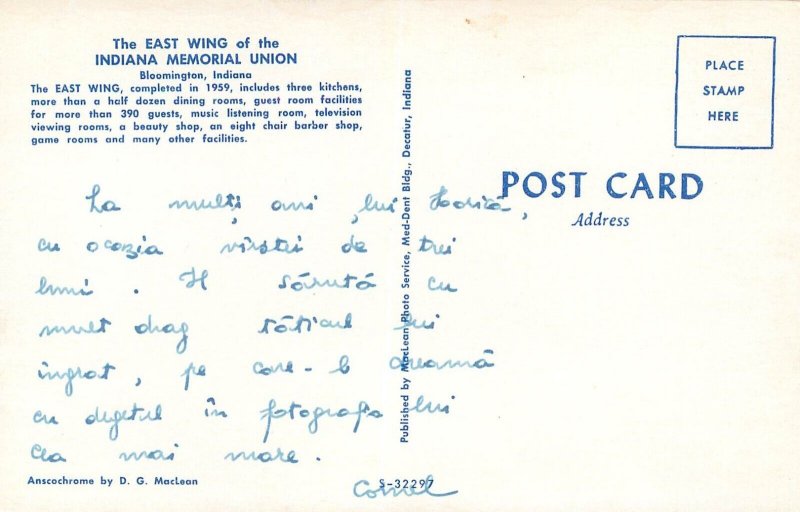 The EAST WING of the
INDIANA MEMORIAL UNION
Bloomington, Indiana
The EAST WING, completed in 1959, includes three kitchens,
more than a half dozen dining rooms, guest room facilities
for more than 390 guests, music listening room, television
viewing rooms, a beauty shop, an eight chair barber shop,
game rooms and many other facilities.
La mulți ani lui
cu ocazia vîrstei de trei
luni. Îl sărută cu
mult drag tăticul lui
ingrat, pe care-l
cu degetul în fotografia lui
cea mai mare.
Cornel
Anscochrome by D. G. MacLean
S-32297
Published by MacLean Photo Service, Med-Dent Bldg., Decatur, Indiana
PLACE
STAMP
HERE
POST CARD
Address